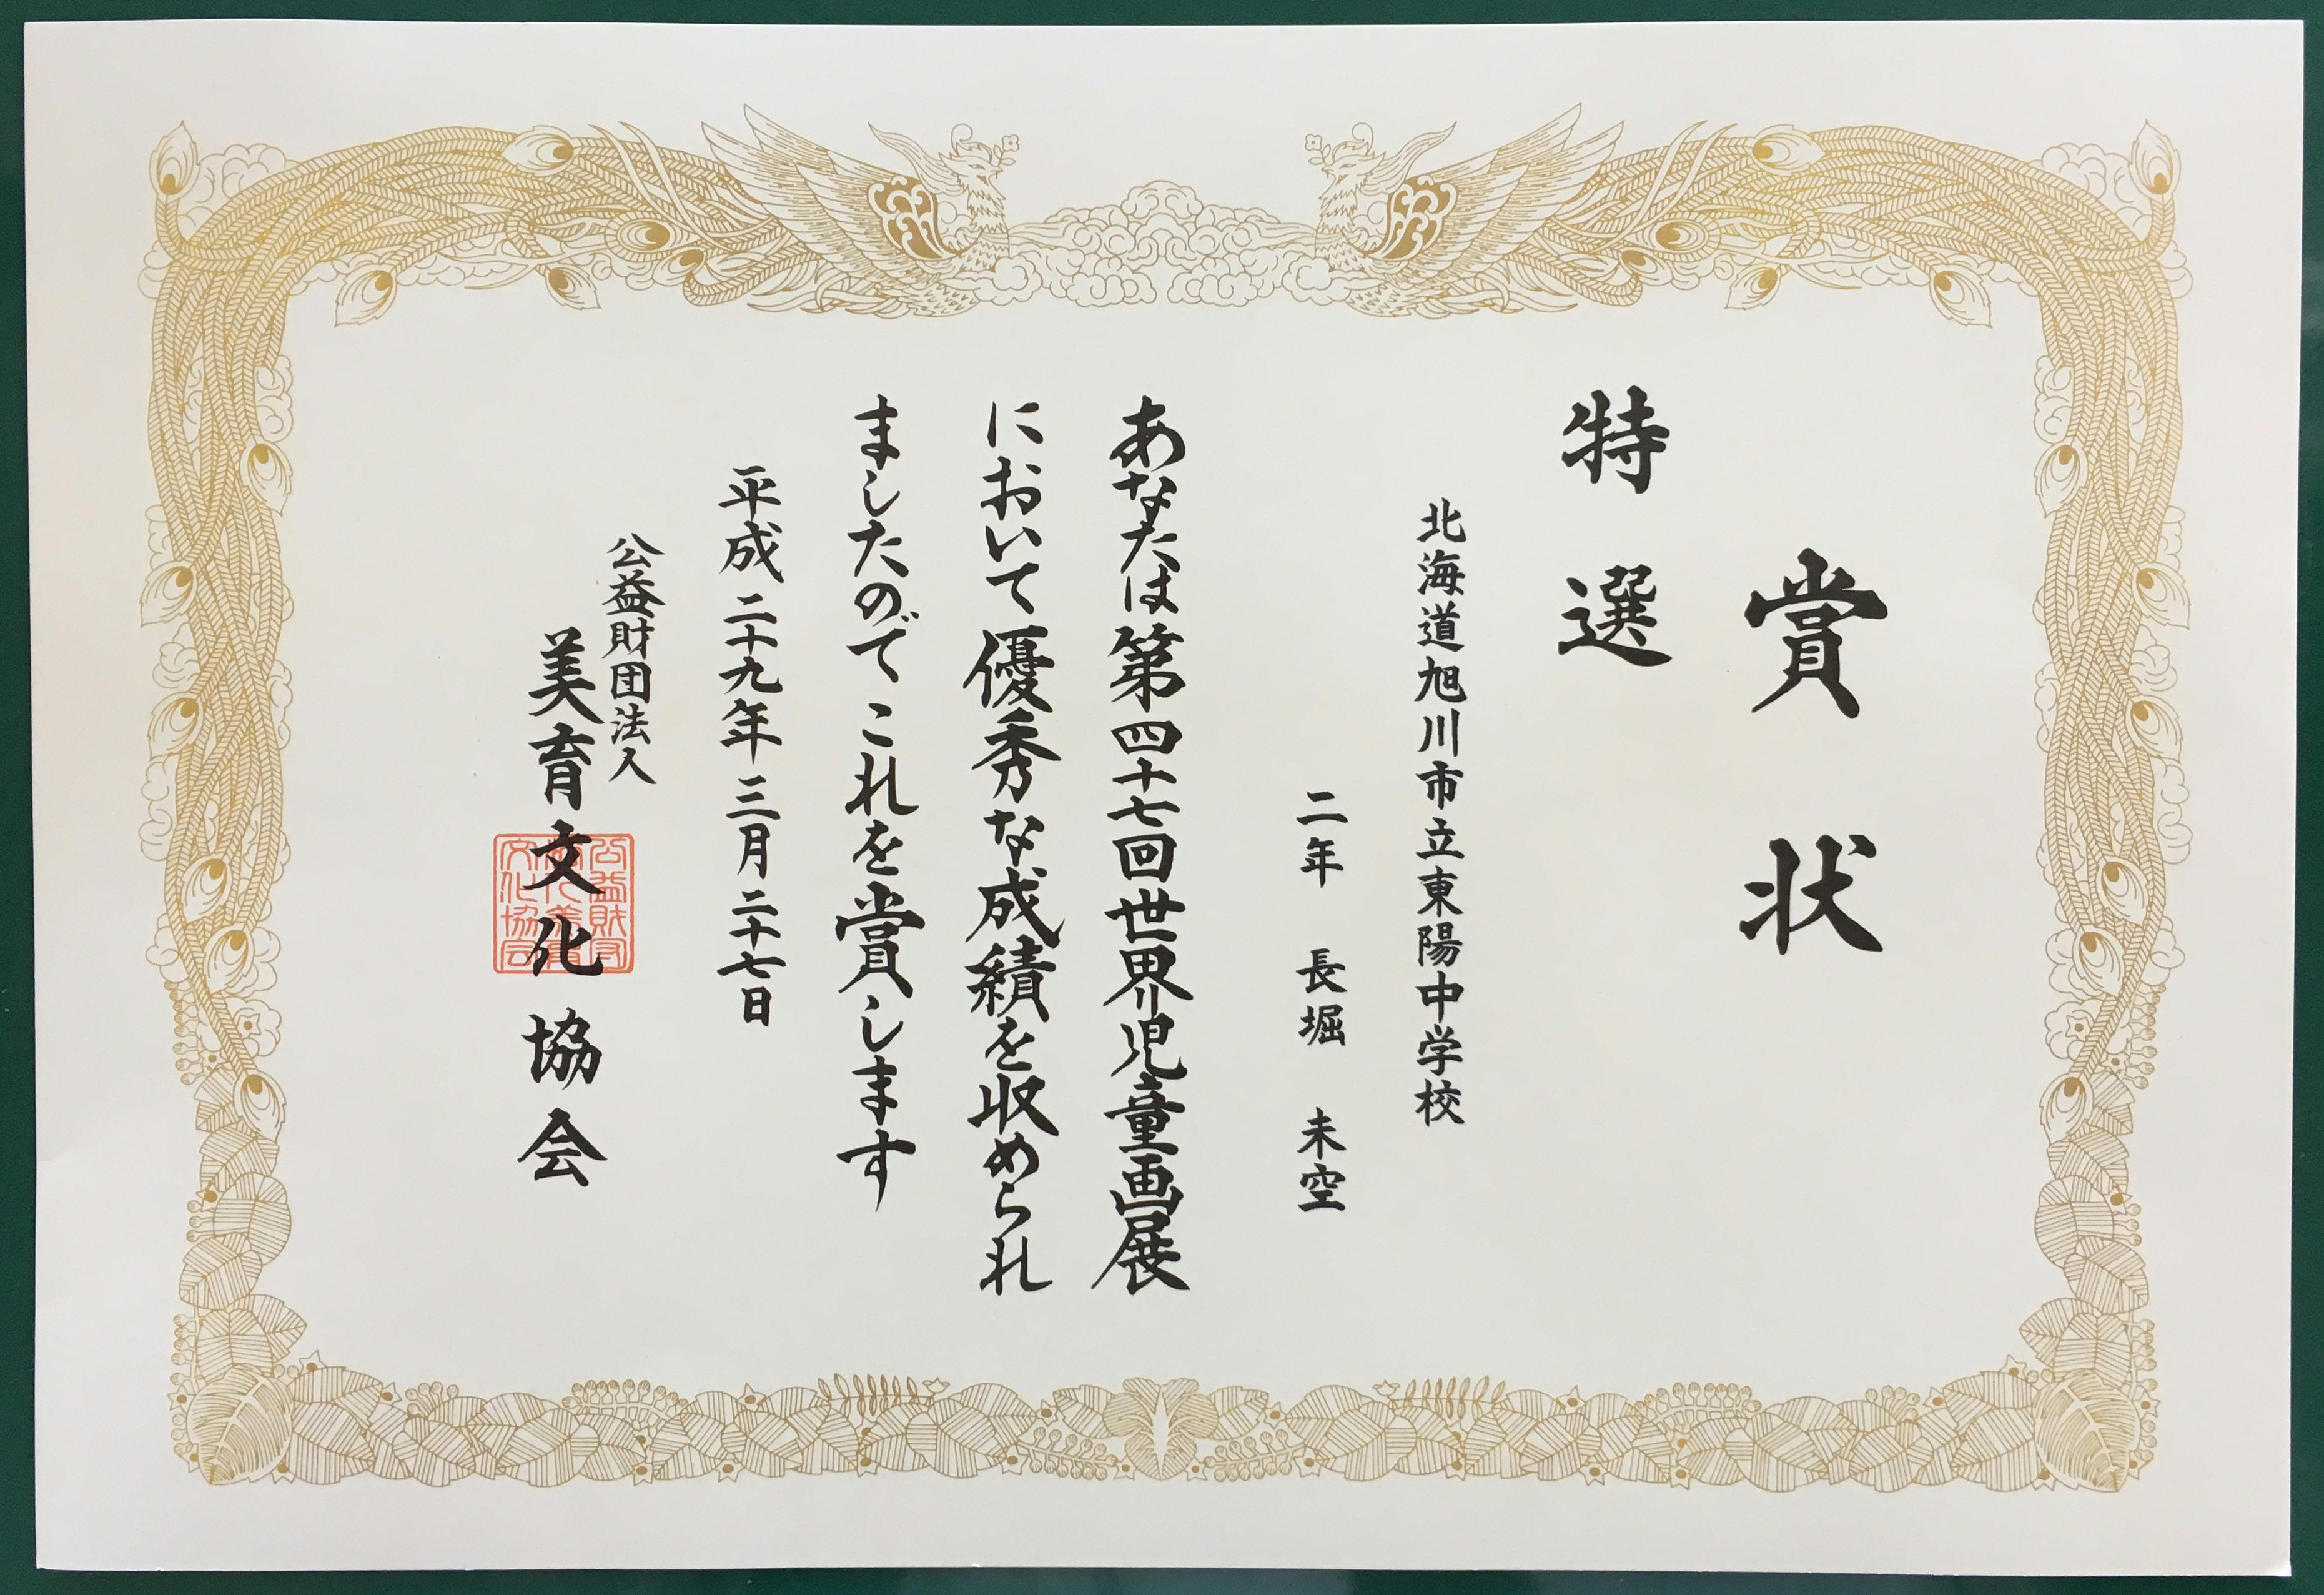 賞状
特選
北海道旭川市立東陽中学校
二年 長堀 未空
あなたは第四十七回世界児童画展
において優秀な成績を収められ
ましたのでこれを賞します
平成二十九年三月二十七日
公益財団法人
美育文化協会